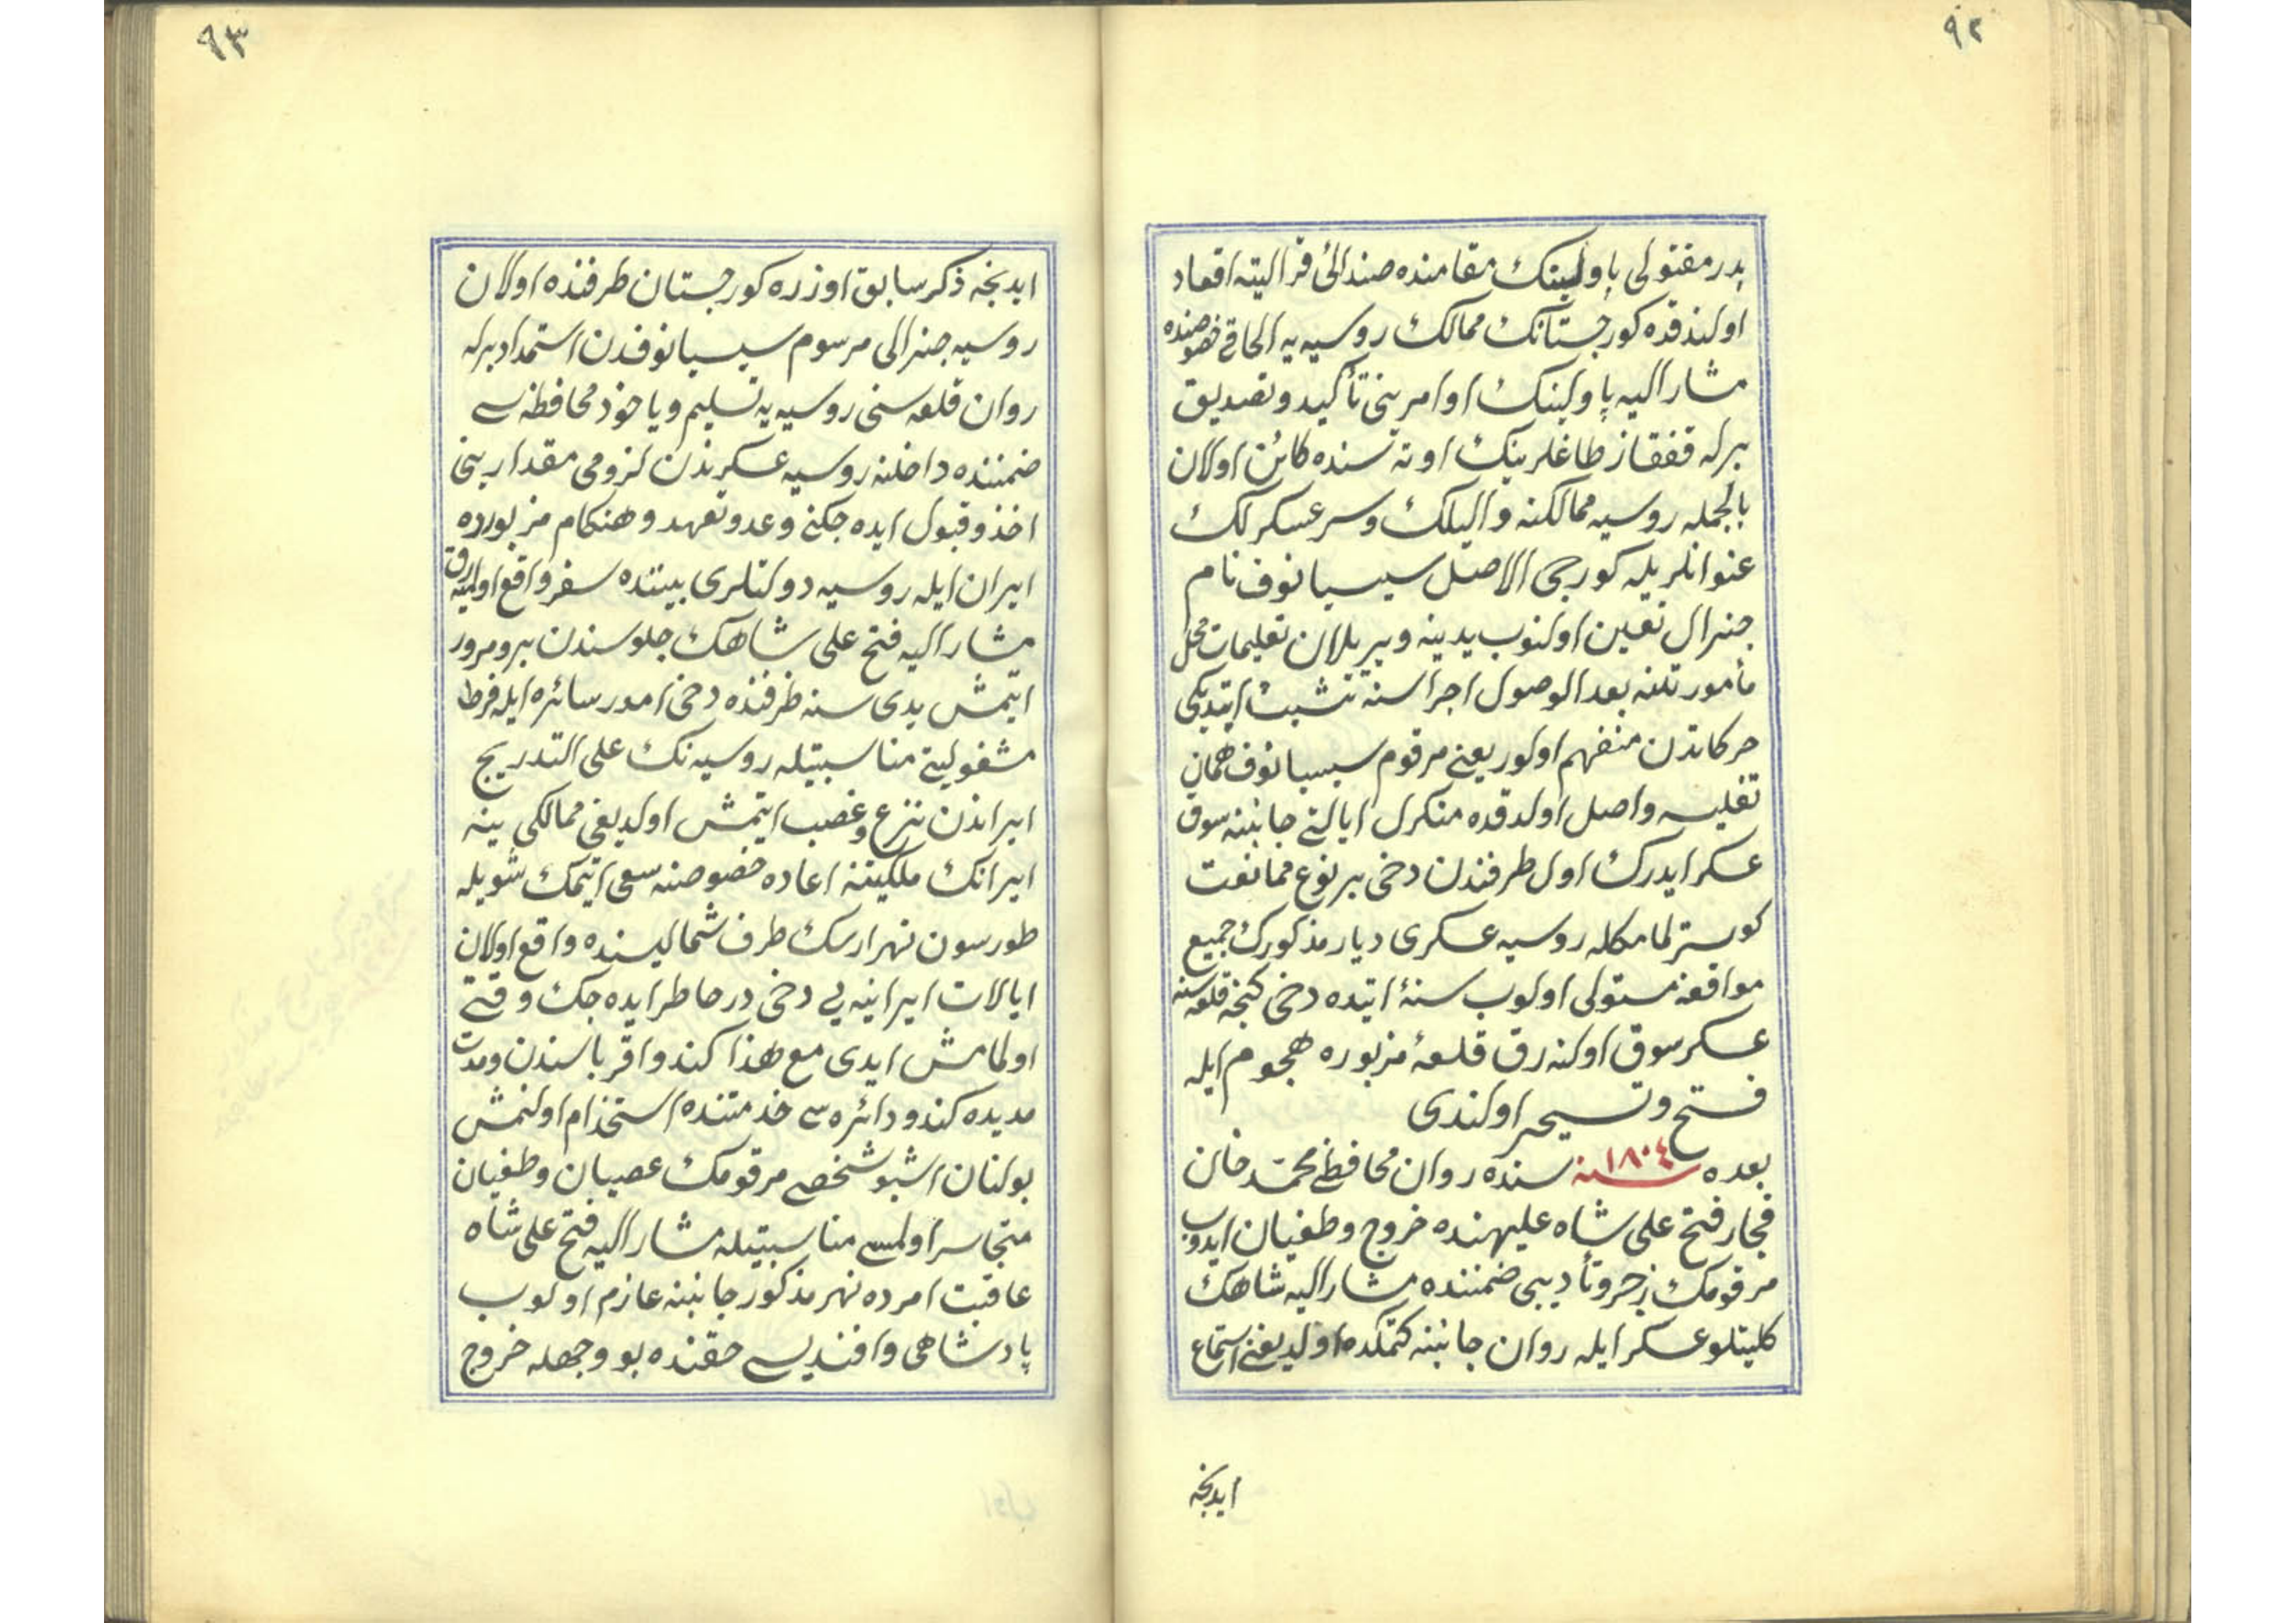 ٩٢
پدر مقتولی پاولینك مقامنده صندالئ قرالیته اقعاد
اولندقده كورجستانك ممالك روسیه یه الحاقی خصوصنده
مشار الیه پاولینك اوامرینی تأكید و تصدیق
برله قفقاز طاغلرینك اوته سنده كائن اولان
بالجمله روسیه ممالكنه والیلك و سرعسكرلك
عنوانلریله كورجی الاصل سیسیانوف نام
جنرال تعیین اولنوب یدینه ویریلان تعلیمات محل
مأمورتلنه بعد الوصول اجراسنه تشبث ایتدیكی
حركاتدن منفهم اولور یعنی مرقوم سیسیانوف همان
تفلیسه واصل اولدقده منكرل ایالتی جانبنه سوق
عسكر ایدرك اول طرفندن دخی بر نوع ممانعت
كوسترلمامكله روسیه عسكری دیار مذكورك جمیع
مواقعنه مستولی اولوب سنۀ اتیده دخی كنجه قلعه سنه
عسكر سوق اولنه رق قلعۀ مزبوره هجوم ایله
فتح و تسیحر اولندی
بعده سنه ١٨٠٤ سنده روان محافظی محمد خان
قجار فتح علی شاه علیهنده خروج و طغیان ایدوب
مرقومك زجر و تأدیبی ضمننده مشار الیه شاهك
كلیتلو عسكر ایله روان جانبنه كتمكده اولدیغنی استماع
ایدنجه
٩٣
ایدنجه ذكر سابق اوزره كورجستان طرفنده اولان
روسیه جنرالی مرسوم سیسیانوفدن استمداد برله
روان قلعه سنی روسیه یه تسلیم و یاخود محافظه سی
ضمننده داخلنه روسیه عسكرندن لزومی مقدارینی
اخذ و قبول ایده جكنی وعد و تعهد و هنكام مزبورده
ایران ایله روسیه دولتلری بیننده سفر واقع اولمیه رق
مشار الیه فتح علی شاهك جلوسندن برو مرور
ایتمش یدی سنه ظرفنده دخی امور سائره ایله فرط
مشغولیتی مناسبتیله روسیه نك علی التدریج
ایراندن نزع و غصب ایتمش اولدیغی ممالكی ینه
ایرانك ملكیتنه اعاده خصوصنه سعی ایتمك شویله
طورسون نهر ارسك طرف شمالیسنده واقع اولان
ایالات ایرانیه یی دخی درخاطر ایده جك وقتی
اولمامش ایدی مع هذا كندو اقرباسندن و مدت
مدیده كندو دائره سی خدمتنده استخدام اولنمش
بولنان اشبو شخصی مرقومك عصیان و طغیان
متجاسر اولمسی مناسبتیله مشار الیه فتح علی شاه
عاقبت امرده نهر مذكور جانبنه عازم اولوب
پادشاهی و افندیسی حقنده بو وجهله خروج